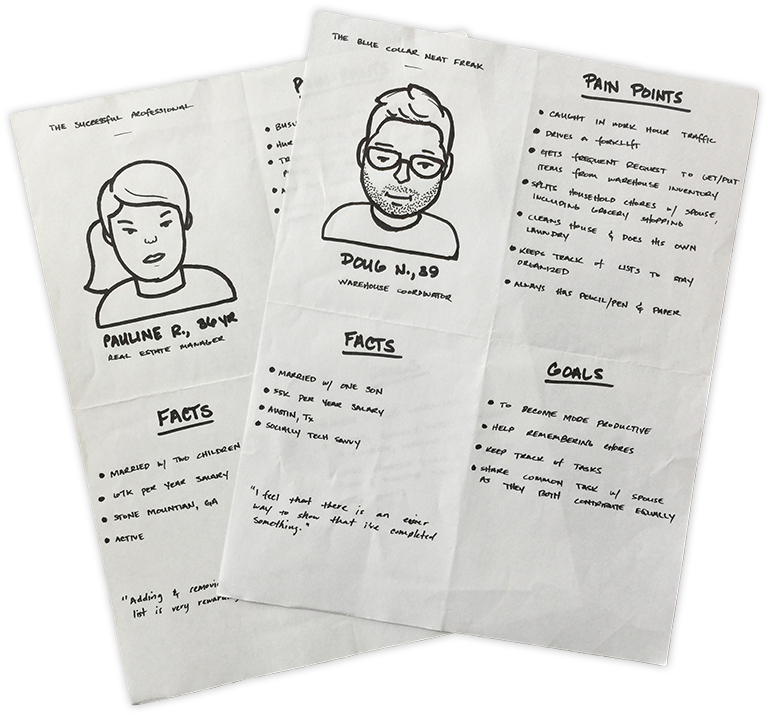 THE SUCCESSFUL PROFESSIONAL
PAULINE R., 36 YR
REAL ESTATE MANAGER
FACTS
• MARRIED W/ TWO CHILDREN
• 67K PER YEAR SALARY
• STONE MOUNTIAN, GA
• ACTIVE
"Adding & removi
list is very reward
P
• BUSY
• HUR
• TR
THE BLUE COLLAR NEAT FREAK
DOUG N., 39
WAREHOUSE COORDINATOR
FACTS
• MARRIED W/ ONE SON
• 55K PER YEAR SALARY
• AUSTIN, TX
• SOCIALLY TECH SAVVY
"I feel that there is an easier
way to show that i've completed
something."
PAIN POINTS
• CAUGHT IN WORK HOUR TRAFFIC
• DRIVES A FORKLIFT
• GETS FREQUENT REQUEST TO GET/PUT
ITEMS FROM WAREHOUSE INVENTORY
• SPLITS HOUSEHOLD CHORES W/ SPOUSE,
INCLUDING GROCERY SHOPPING
• CLEANS HOUSE & DOES HIS OWN
LAUNDRY
• KEEPS TRACK OF LISTS TO STAY
ORGANIZED
• ALWAYS HAS PENCIL/PEN & PAPER
GOALS
• TO BECOME MORE PRODUCTIVE
• HELP REMEMBERING CHORES
• KEEP TRACK OF TASKS
• SHARE COMMON TASK W/ SPOUSE
AS THEY BOTH CONTRIBUTE EQUALLY